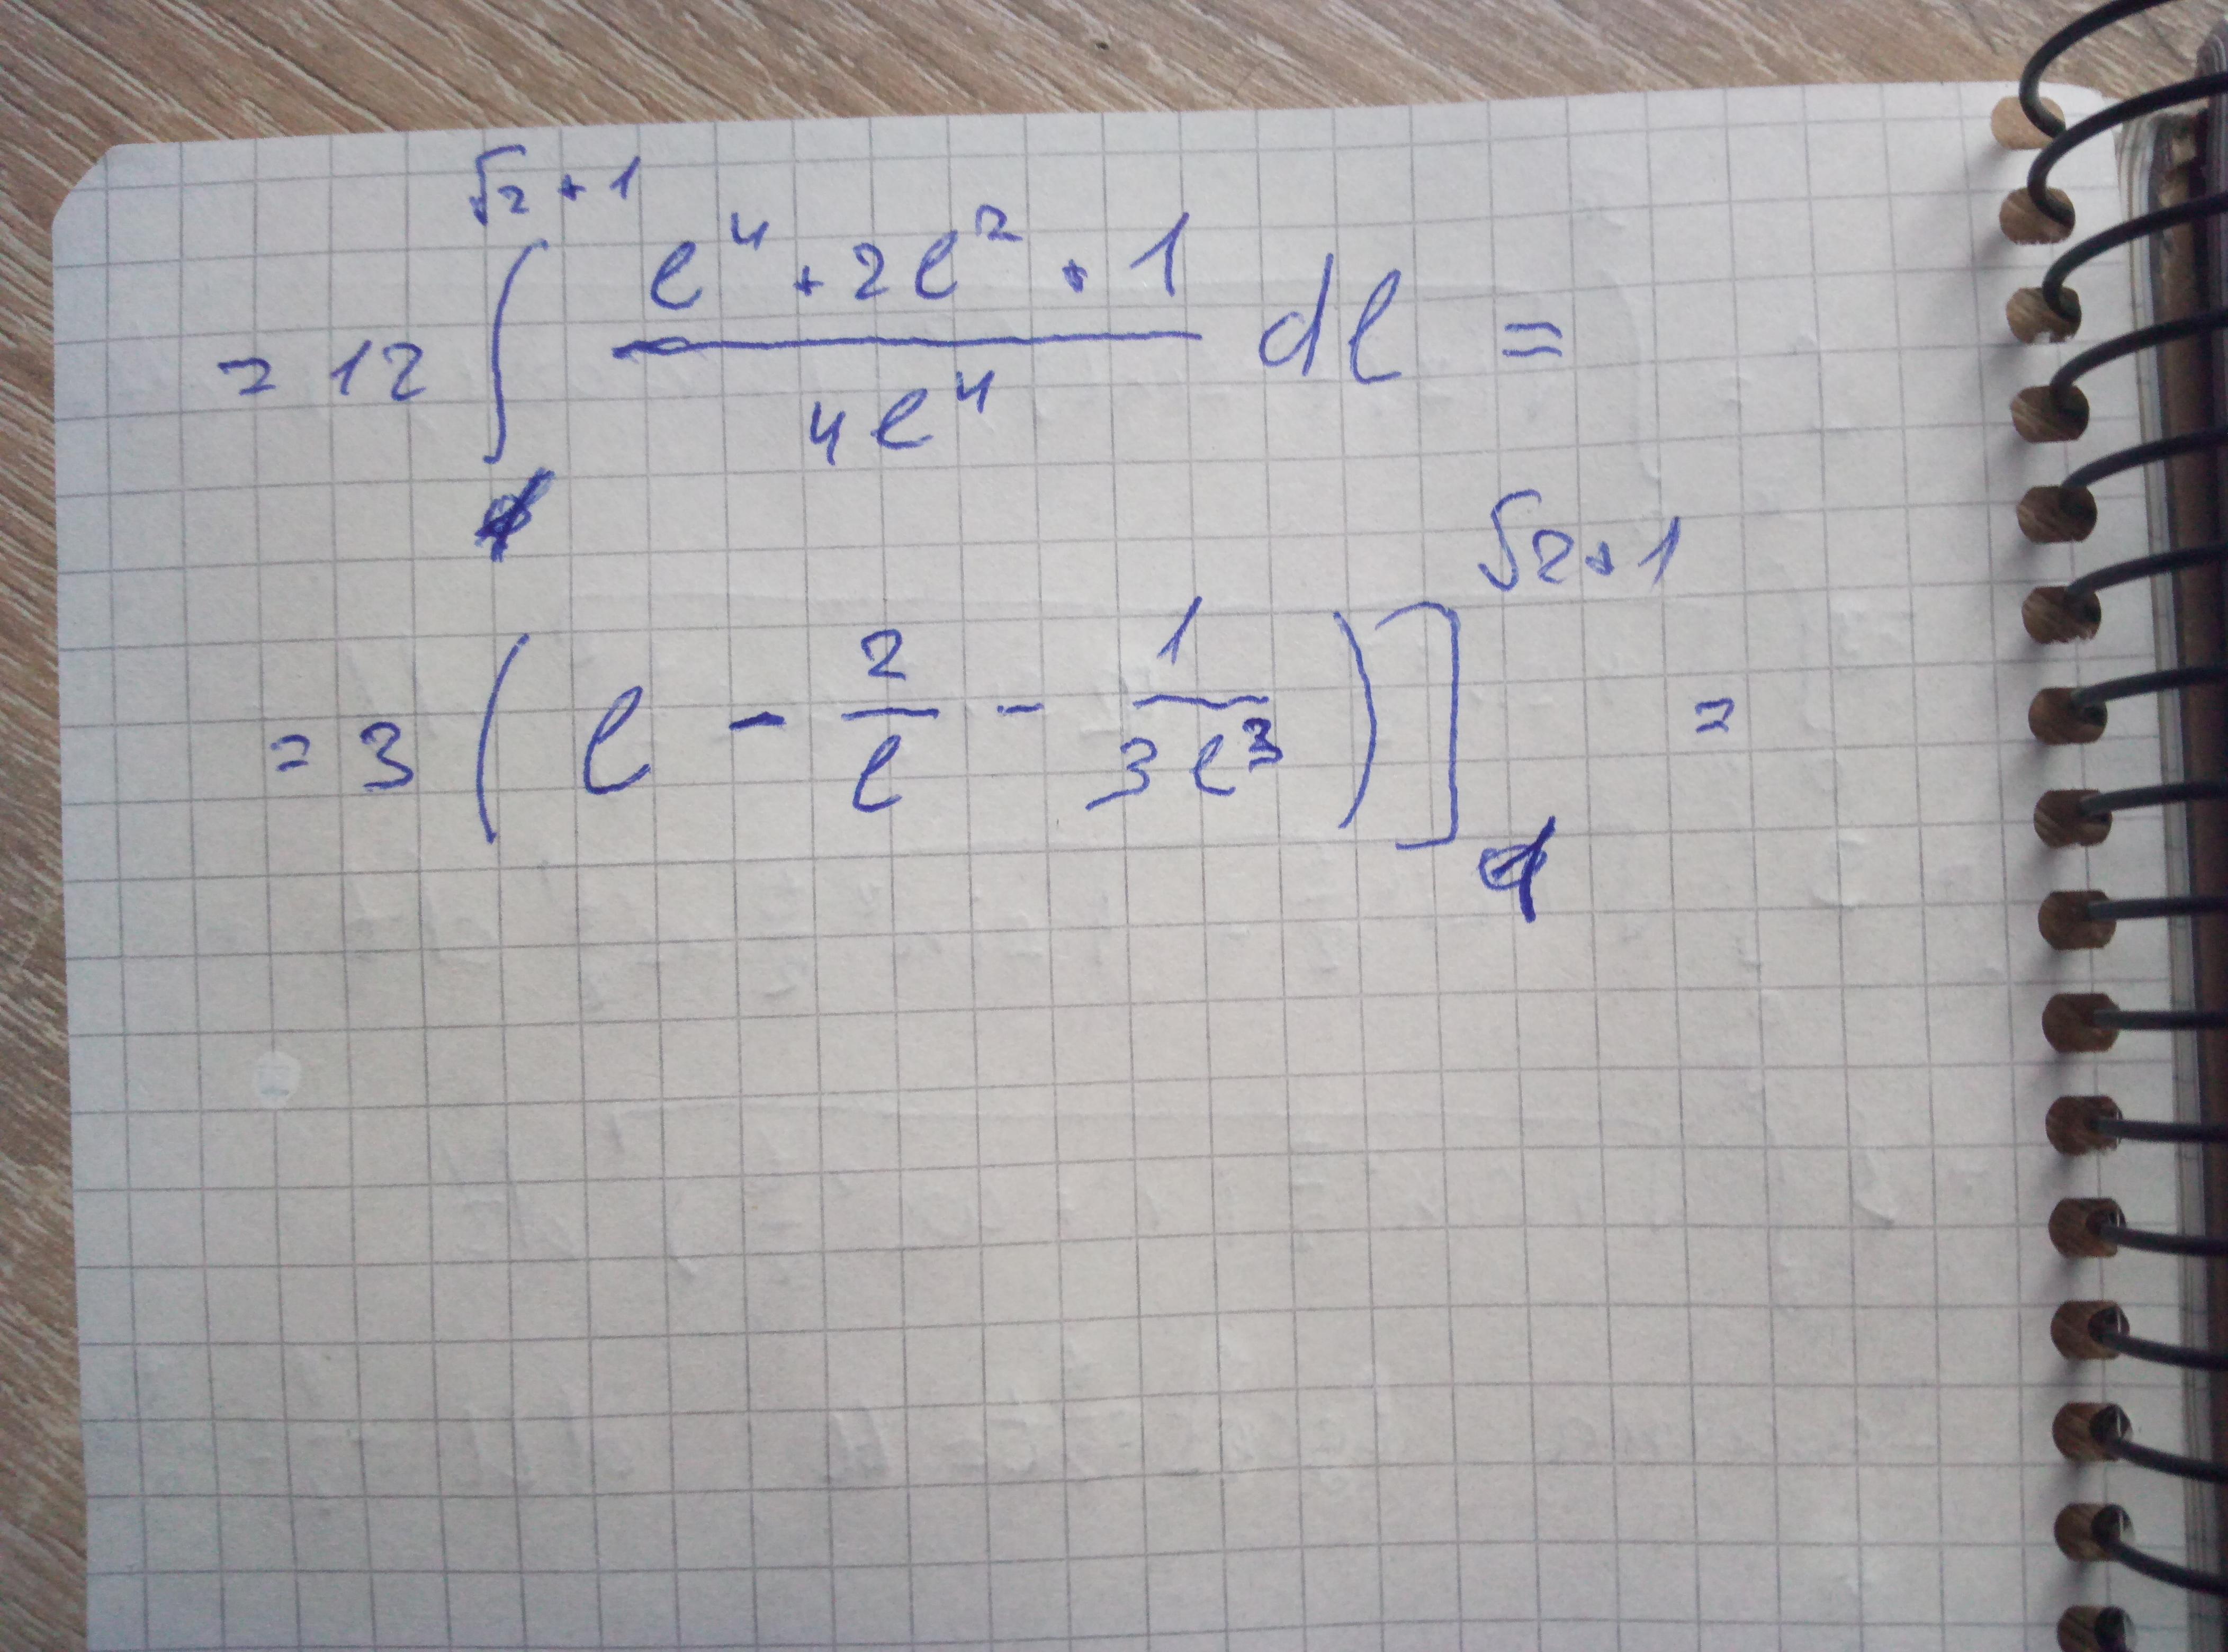 = 12 ∫_1^{√2+1} (l^4 + 2l^2 + 1)/(4l^4) dl =
= 3 ( l - 2/l - 1/(3l^3) ) ]_1^{√2+1} =